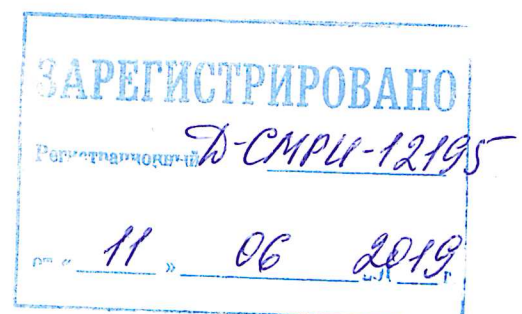 ЗАРЕГИСТРИРОВАНО
Регистрационный Д-СМРИ-12195
от " 11 " 06 2019 г.